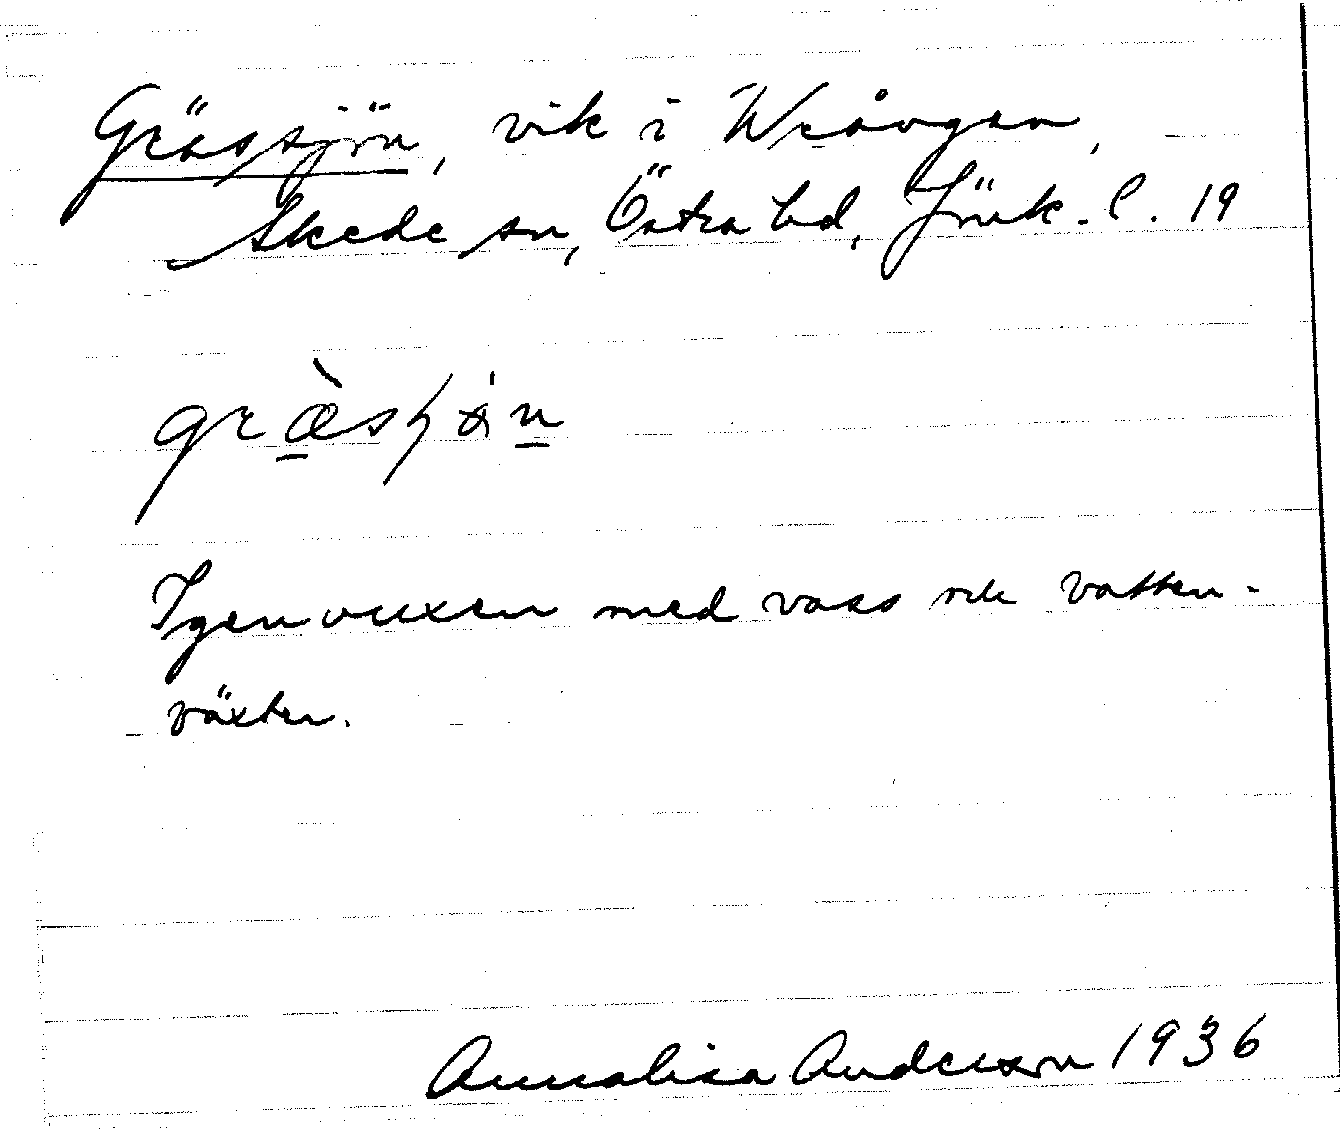 Grässjön, vik i Wrången,
Skede sn, Östra hd, Jönk. l. 19
Igenvuxen med vass och vatten-
växter.
Annalisa Anderson 1936